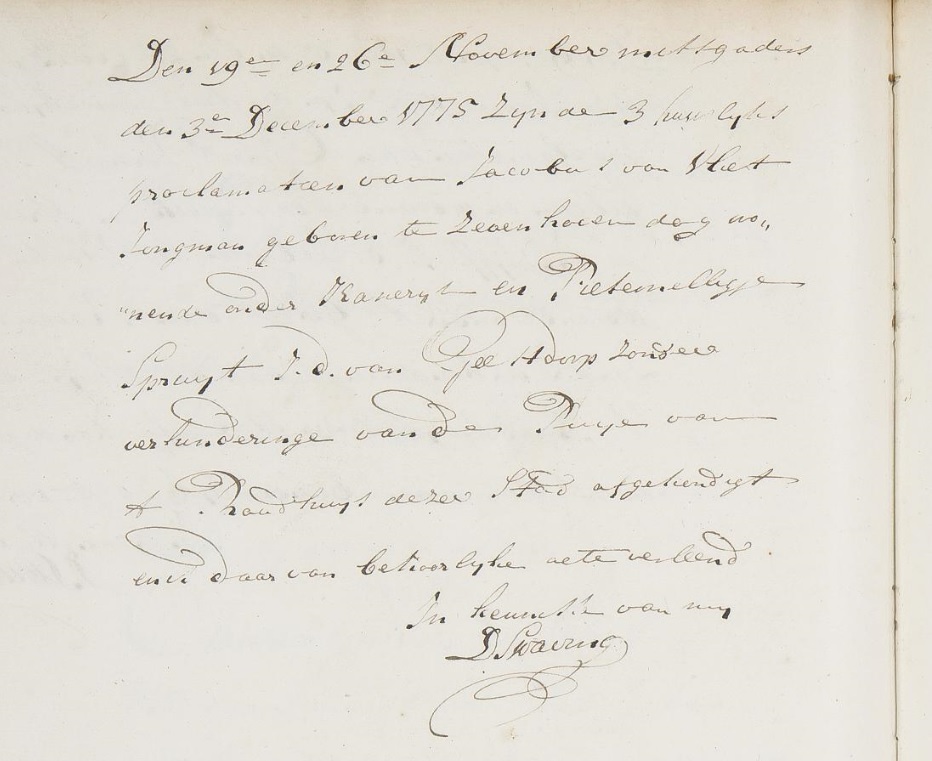 Den 19en en 26e November mitsgaders
den 3en December 1775 Zyn de 3 huwlyks
proclamatien van Jacobus van Vliet
Jongman geboren te Zevenhoven dog wo„
„nende onder Kameryk en Pieternelletje
Spruyt J. d. van 't Dorp zonder
verhinderinge van de Puye van
't Raadhuys dezer Stad afgekondigt
en is daar van behoorlyke acte verleend
In kennisse van my
D Swaving